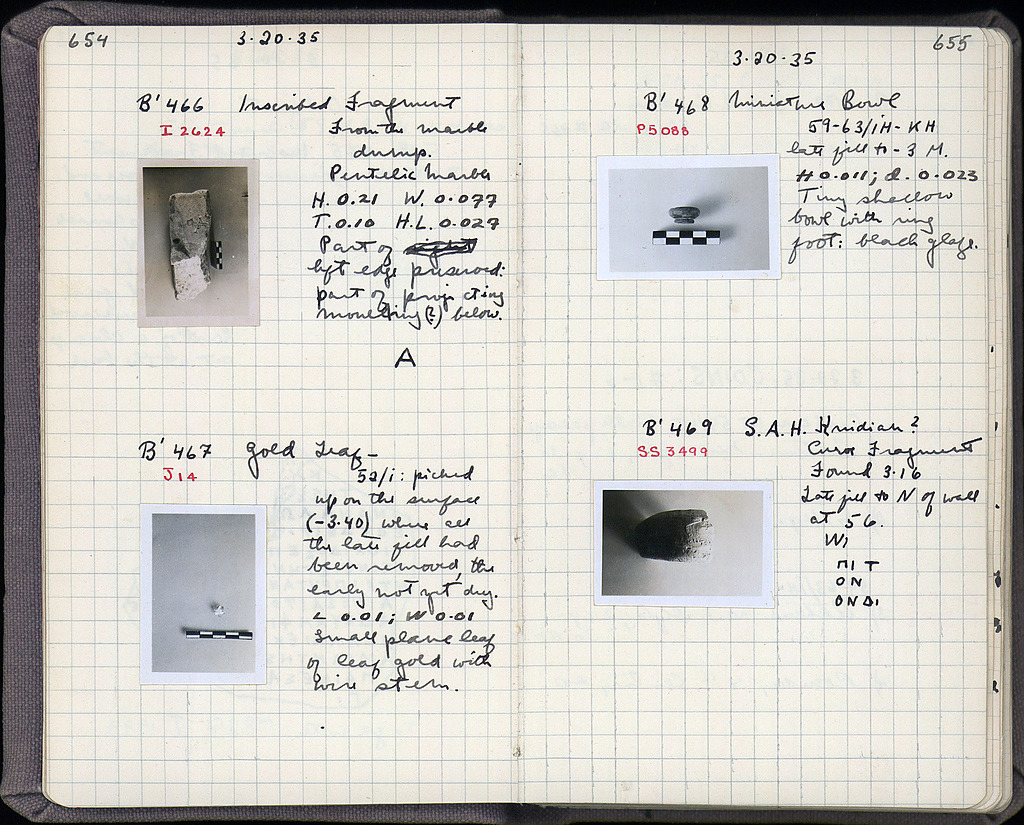 654
3·20·35
B' 466 Inscribed Fragment
I 2624
From the marble
dump.
Pentelic Marble
H. 0.21 W. 0.077
T. 0.10 H.L. 0.027
Part of
left edge preserved:
part of projecting
moulding (?) below.
A
B' 467 Gold Leaf –
J 14
52/i: picked
up on the surface
(–3.40) where all
the late fill had
been removed, the
early not yet dug.
L 0.01; W 0.01
Small plane leaf
of leaf gold with
wire stem.
655
3·20·35
B' 468 Miniature Bowl
P 5088
59-63/IH - KH
late fill to - 3 M.
H 0.011; d. 0.023
Tiny shallow
bowl with ring
foot: black glaze.
B' 469 S.A.H. Knidian?
SS 3499
Found 3·16
Late fill to N of wall
at 56.
ΠΙ Τ
ΟΝ
ΟΝΔΙ